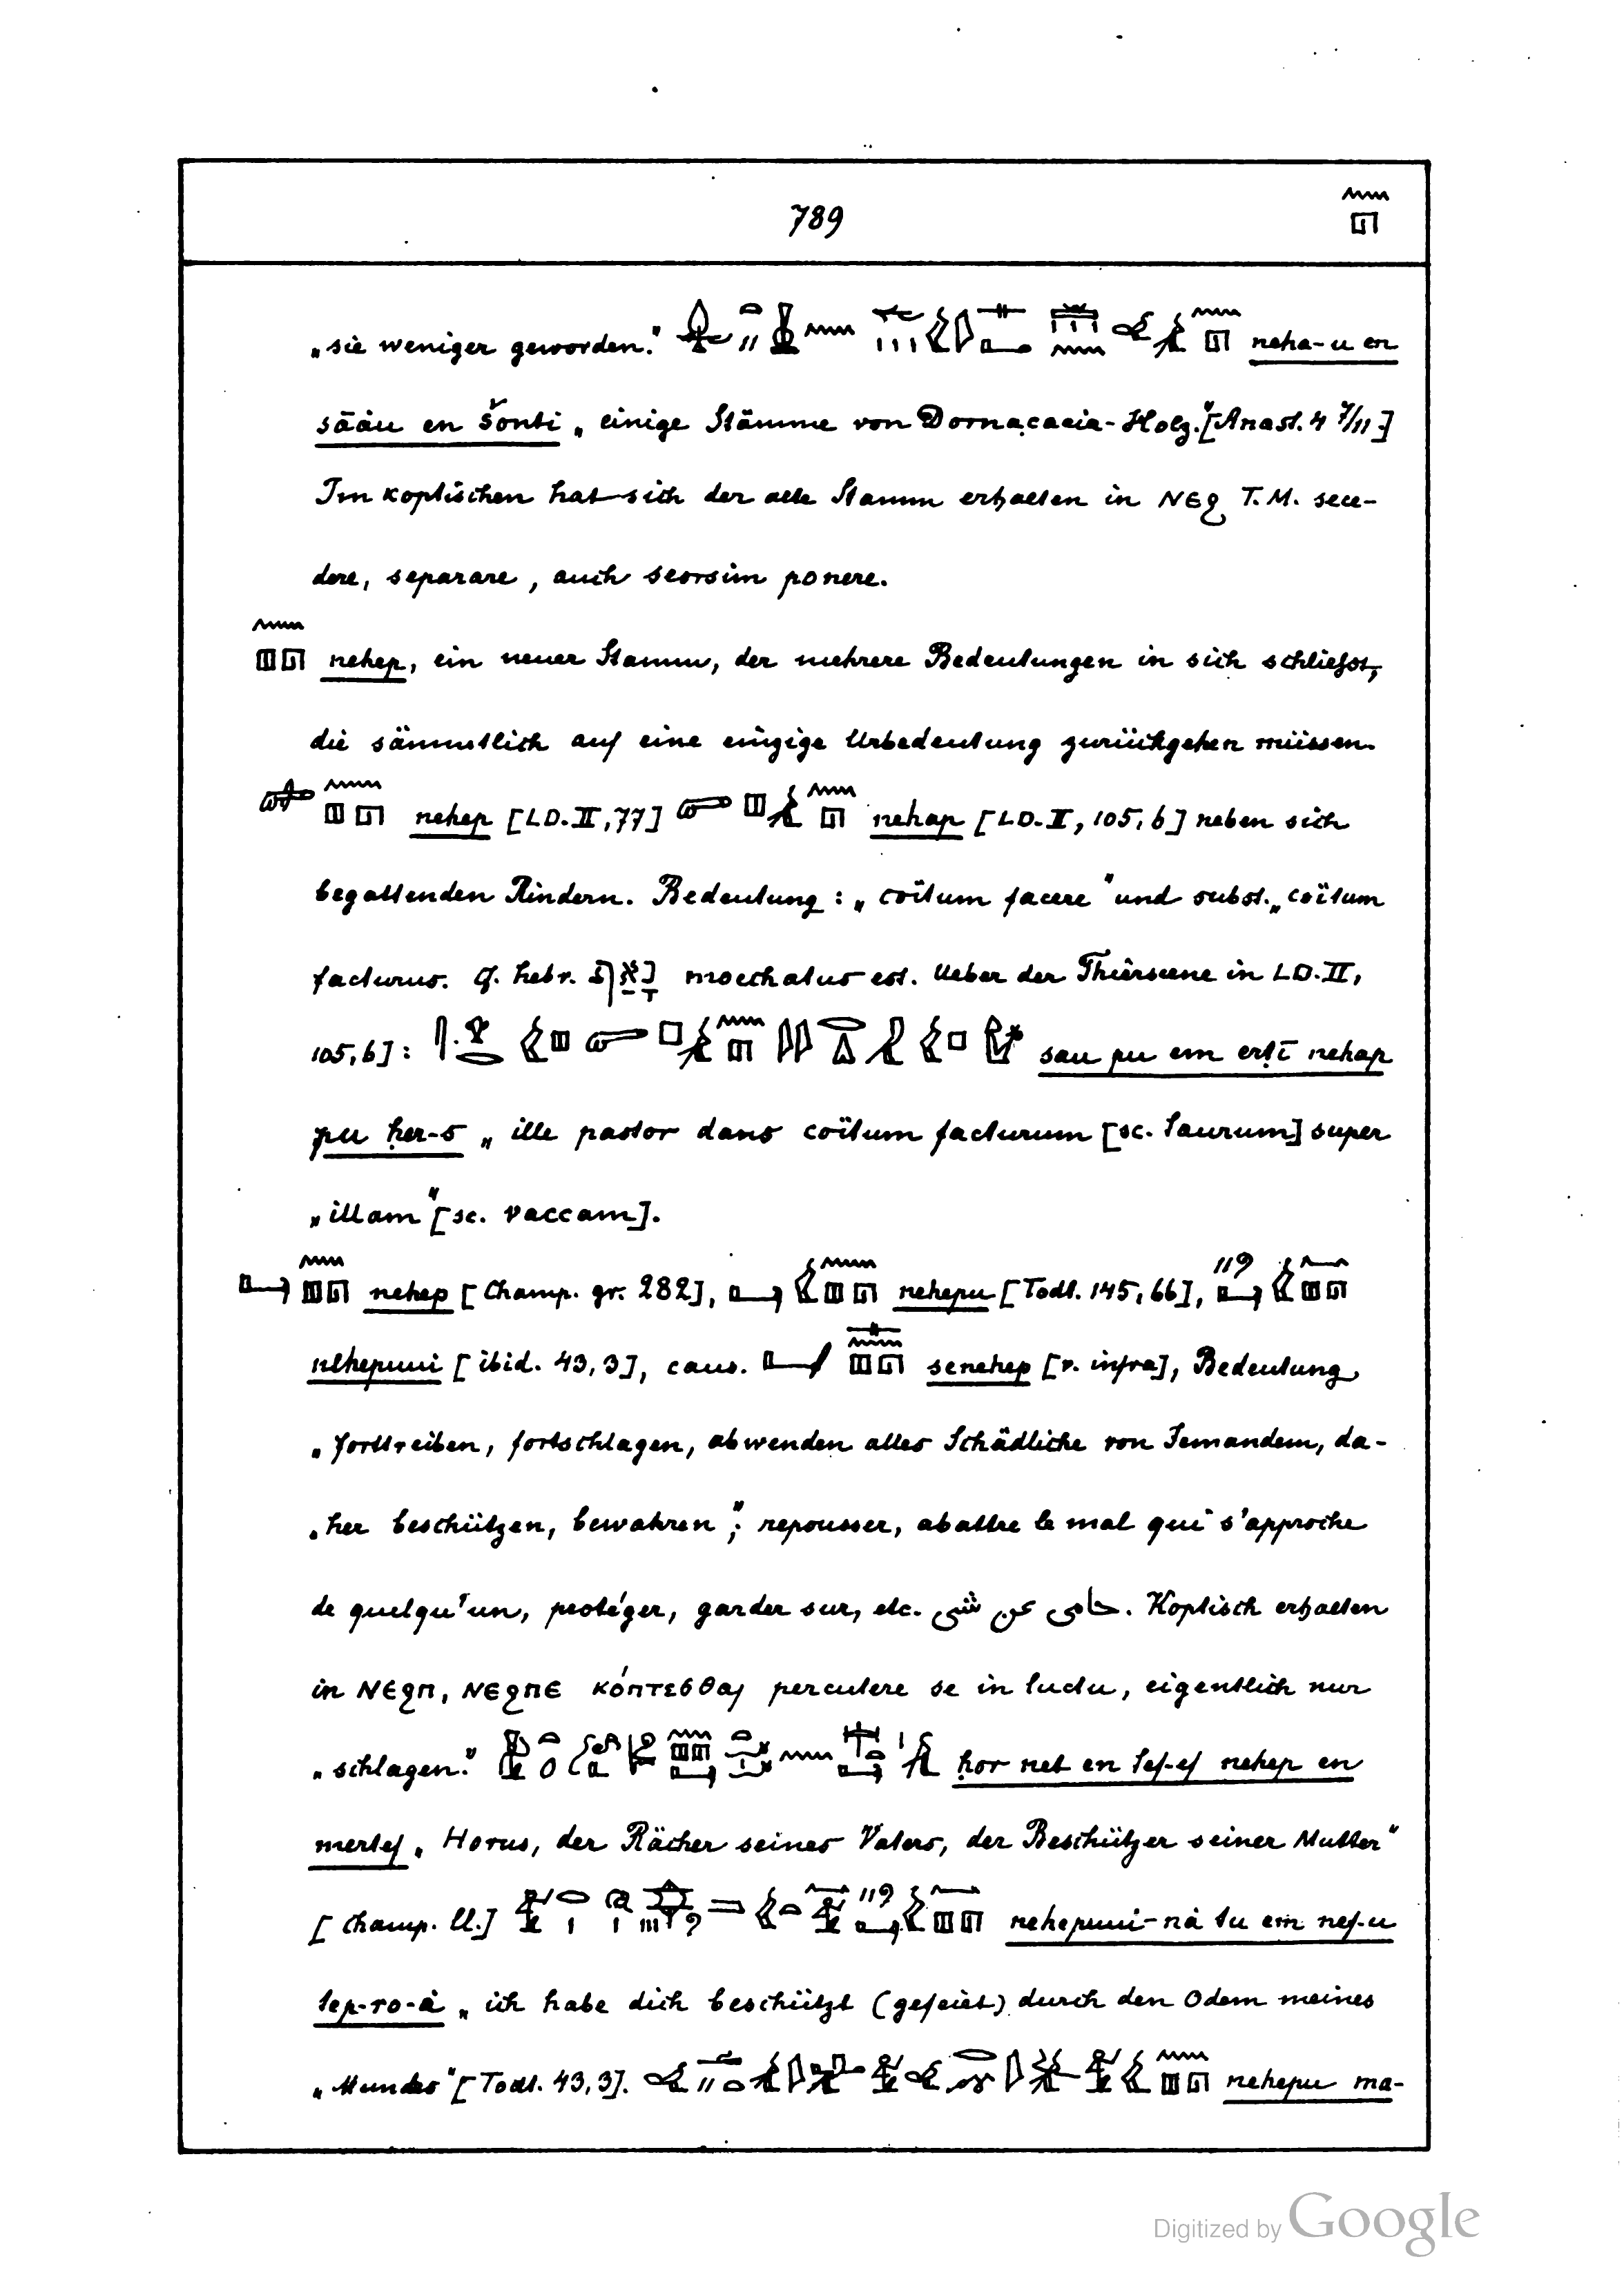 789
„sie weniger geworden.“ neha-u en
sāáu en šonti „einige Stämme von Dornacacia-Holz.“ [Anast. 4 7/11.]
Im koptischen hat sich der alte Stamm erhalten in ⲚⲈϨ T. M. sece-
dere, separare, auch seorsim ponere.
nehep, ein neuer Stamm, der mehrere Bedeutungen in sich schliefst,
die sämmtlich auf eine einzige Urbedeutung zurückgehen müssen.
nehep [LD. II, 77] nehap [LD. II, 105, b] neben sich
begattenden Rindern. Bedeutung: „coïtum facere“ und subst. „coïtum
facturus. cf. hebr. נָאַף moechatus est. Ueber der Thierscene in LD. II,
105, b]: sau pu em erṭī nehap
pu ḥer-s „ille pastor dans coïtum facturum [sc. taurum] super
„illam“ [sc. vaccam].
nehep [Champ. gr. 282], nehepu [Todt. 145, 66],
nehepuui [ibid. 43, 3], caus. senehep [v. infra], Bedeutung
„forttreiben, fortschlagen, abwenden alles Schädliche von Jemandem, da-
„her beschützen, bewahren“; repousser, abattre le mal qui s'approche
de quelqu'un, protéger, garder sur, etc. حامى عن شى. Koptisch erhalten
in ⲚⲈϨⲠ, ⲚⲈϨⲠⲈ κόπτεσθαι percutere se in luctu, eigentlich nur
„schlagen.“ ḥor net en tef-ef nehep en
mertef „Horus, der Rächer seines Vaters, der Beschützer seiner Mutter“
[Champ. ll.] nehepuui-ná tu em nef-u
tep-ro-á „ich habe dich beschützt (gefeiet) durch den Odem meines
„Mundes“ [Todt. 43, 3]. nehepu ma-
Digitized by Google